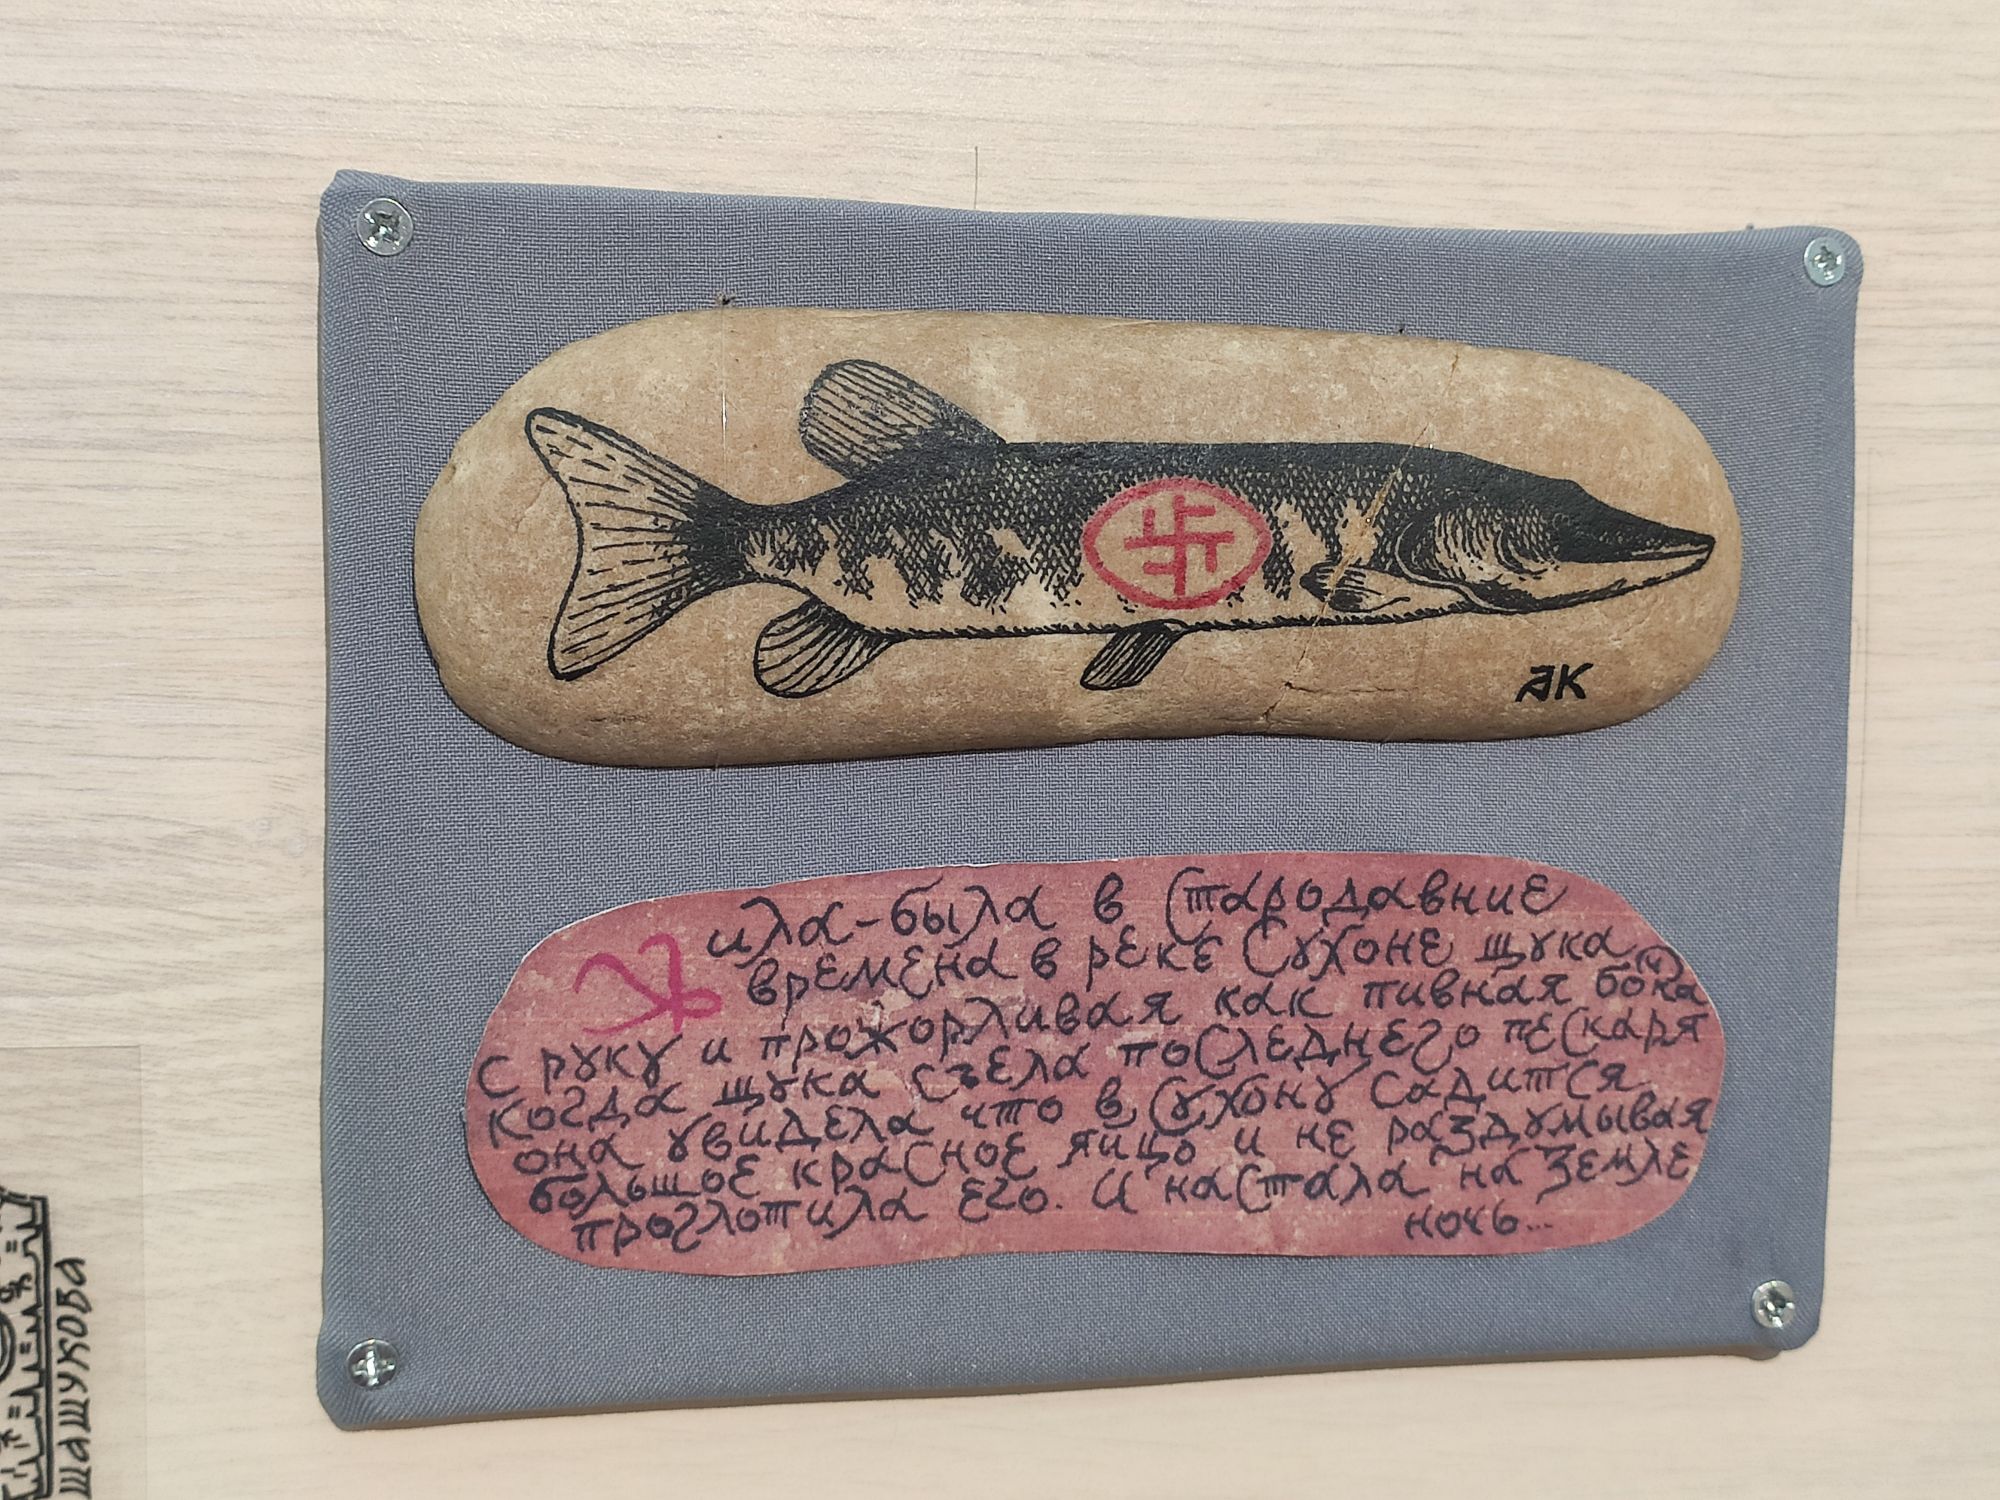 АК
Жила-была в стародавние
времена в реке Сухоне щука
с руку и прожорливая как пивная бо(ч)ка
когда щука съела последнего пескаря
она увидела что в Сухону садится
большое красное яйцо и не раздумывая
проглотила его. И настала на земле
ночь...
ШАШУКОВА